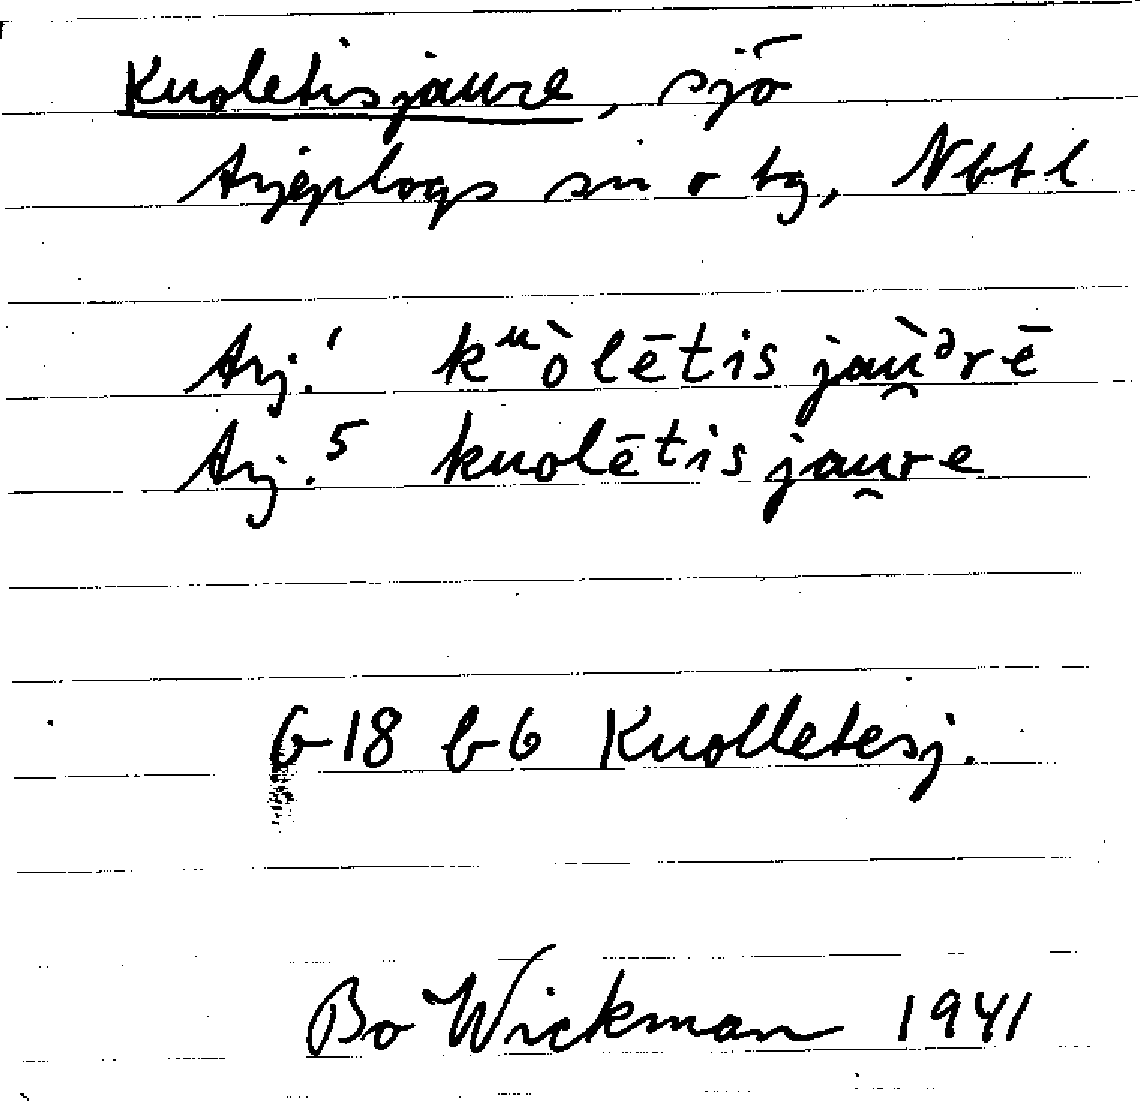 Kuoletisjaure, sjö
Arjeplogs sn o tg, Nbtl
Arj.¹ kᵘòlētis jaù̯ᵊrē
Arj.⁵ kuolētis jau̯re
G-18 b-6 Kuolletesj.
Bo Wickman 1941